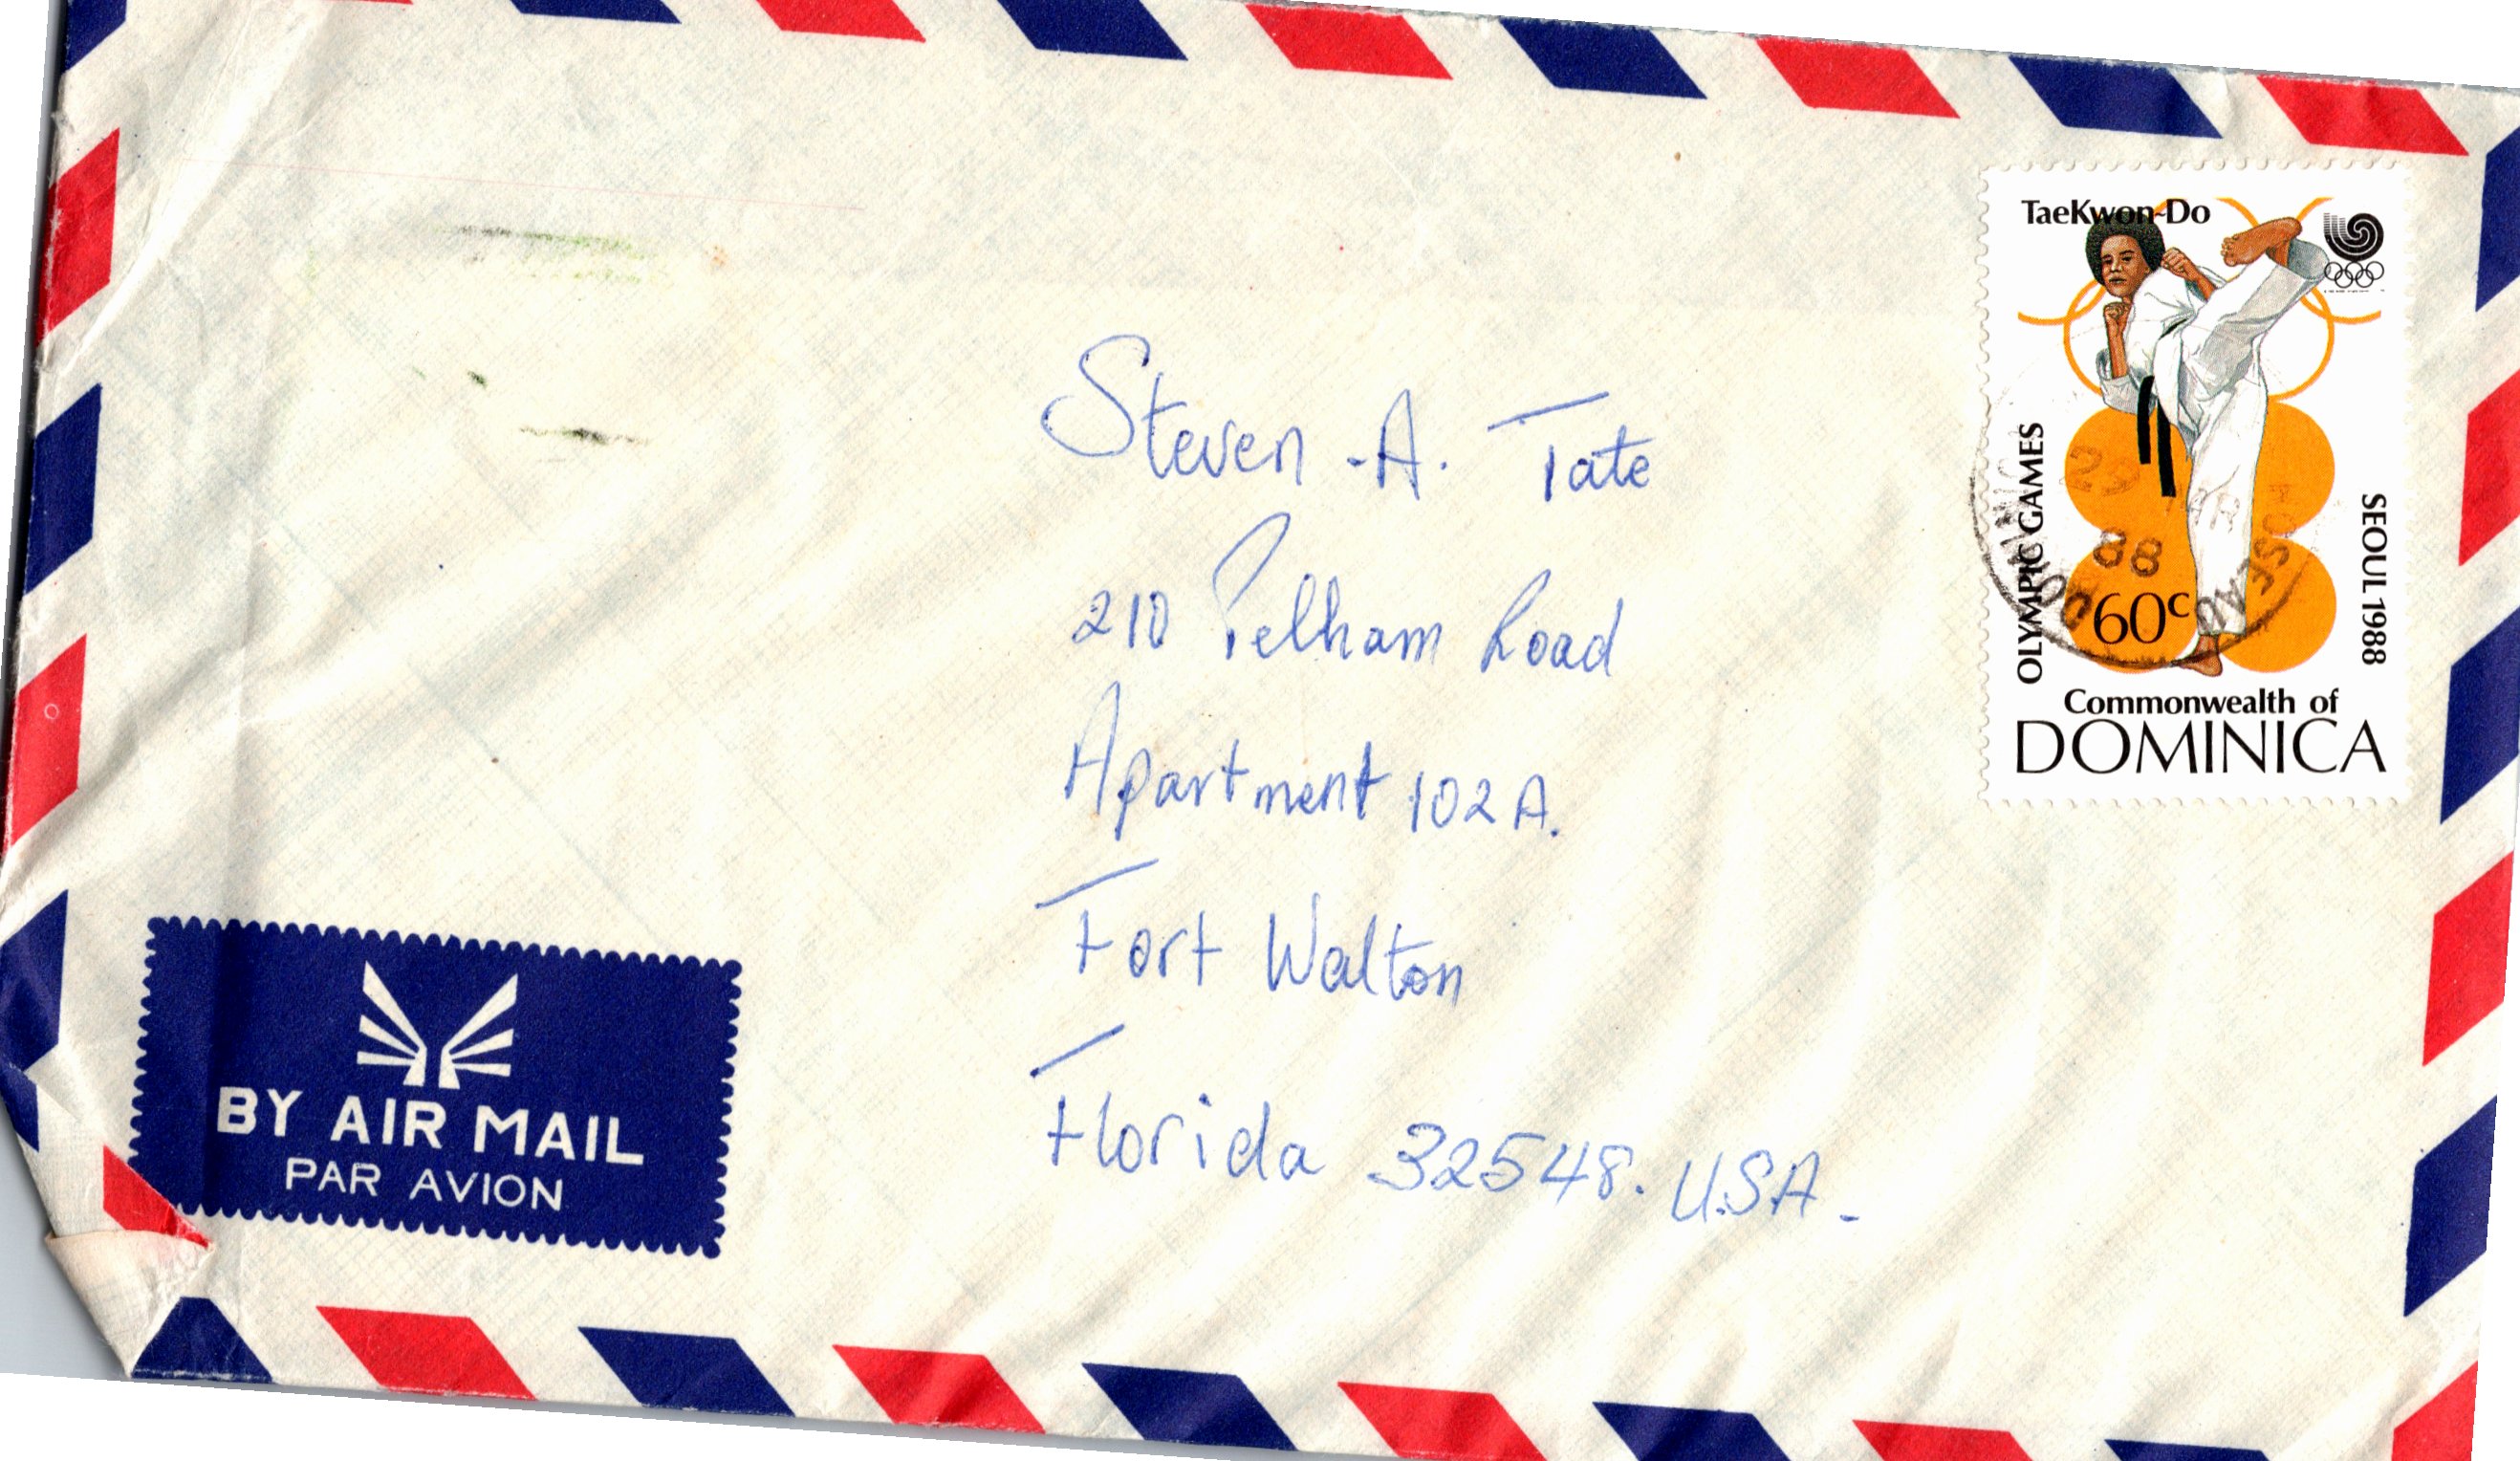 TaeKwon-Do
OLYMPIC GAMES
SEOUL 1988
29 MAR
88
60c
Commonwealth of
DOMINICA
Steven .A. Tate
210 Pelham Road
Apartment 102A.
Fort Walton
Florida 32548. U.S.A.
BY AIR MAIL
PAR AVION